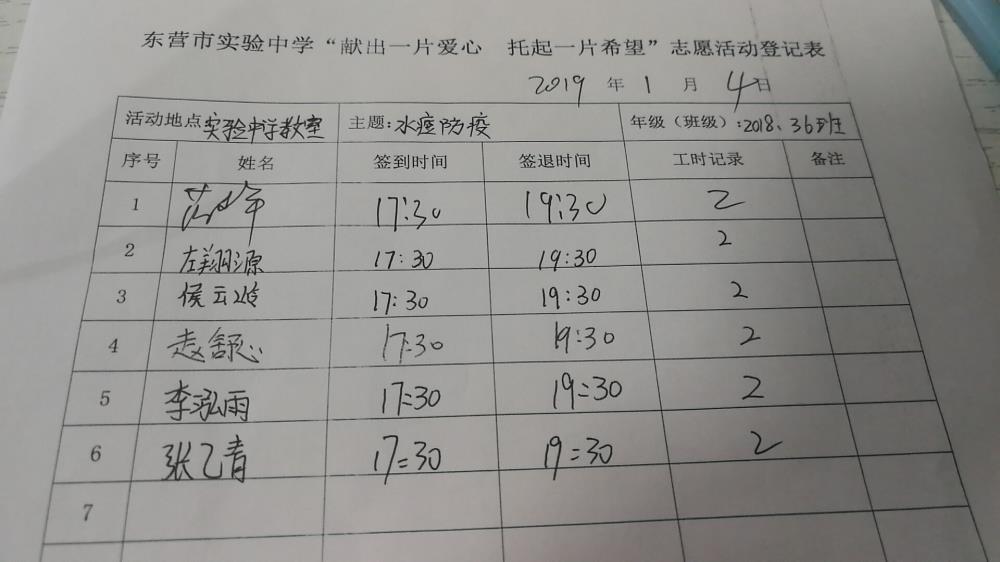 东营市实验中学“献出一片爱心 托起一片希望”志愿活动登记表
2019 年 1 月 4 日
活动地点 实验中学教室 主题:水痘防疫 年级（班级）:2018、36班
序号 姓名 签到时间 签退时间 工时记录 备注
1 17:30 19:30 2
2 左翔源 17:30 19:30 2
3 侯云岭 17:30 19:30 2
4 赵舒心 17:30 19:30 2
5 李泓雨 17:30 19:30 2
6 张乙青 17:30 19:30 2
7